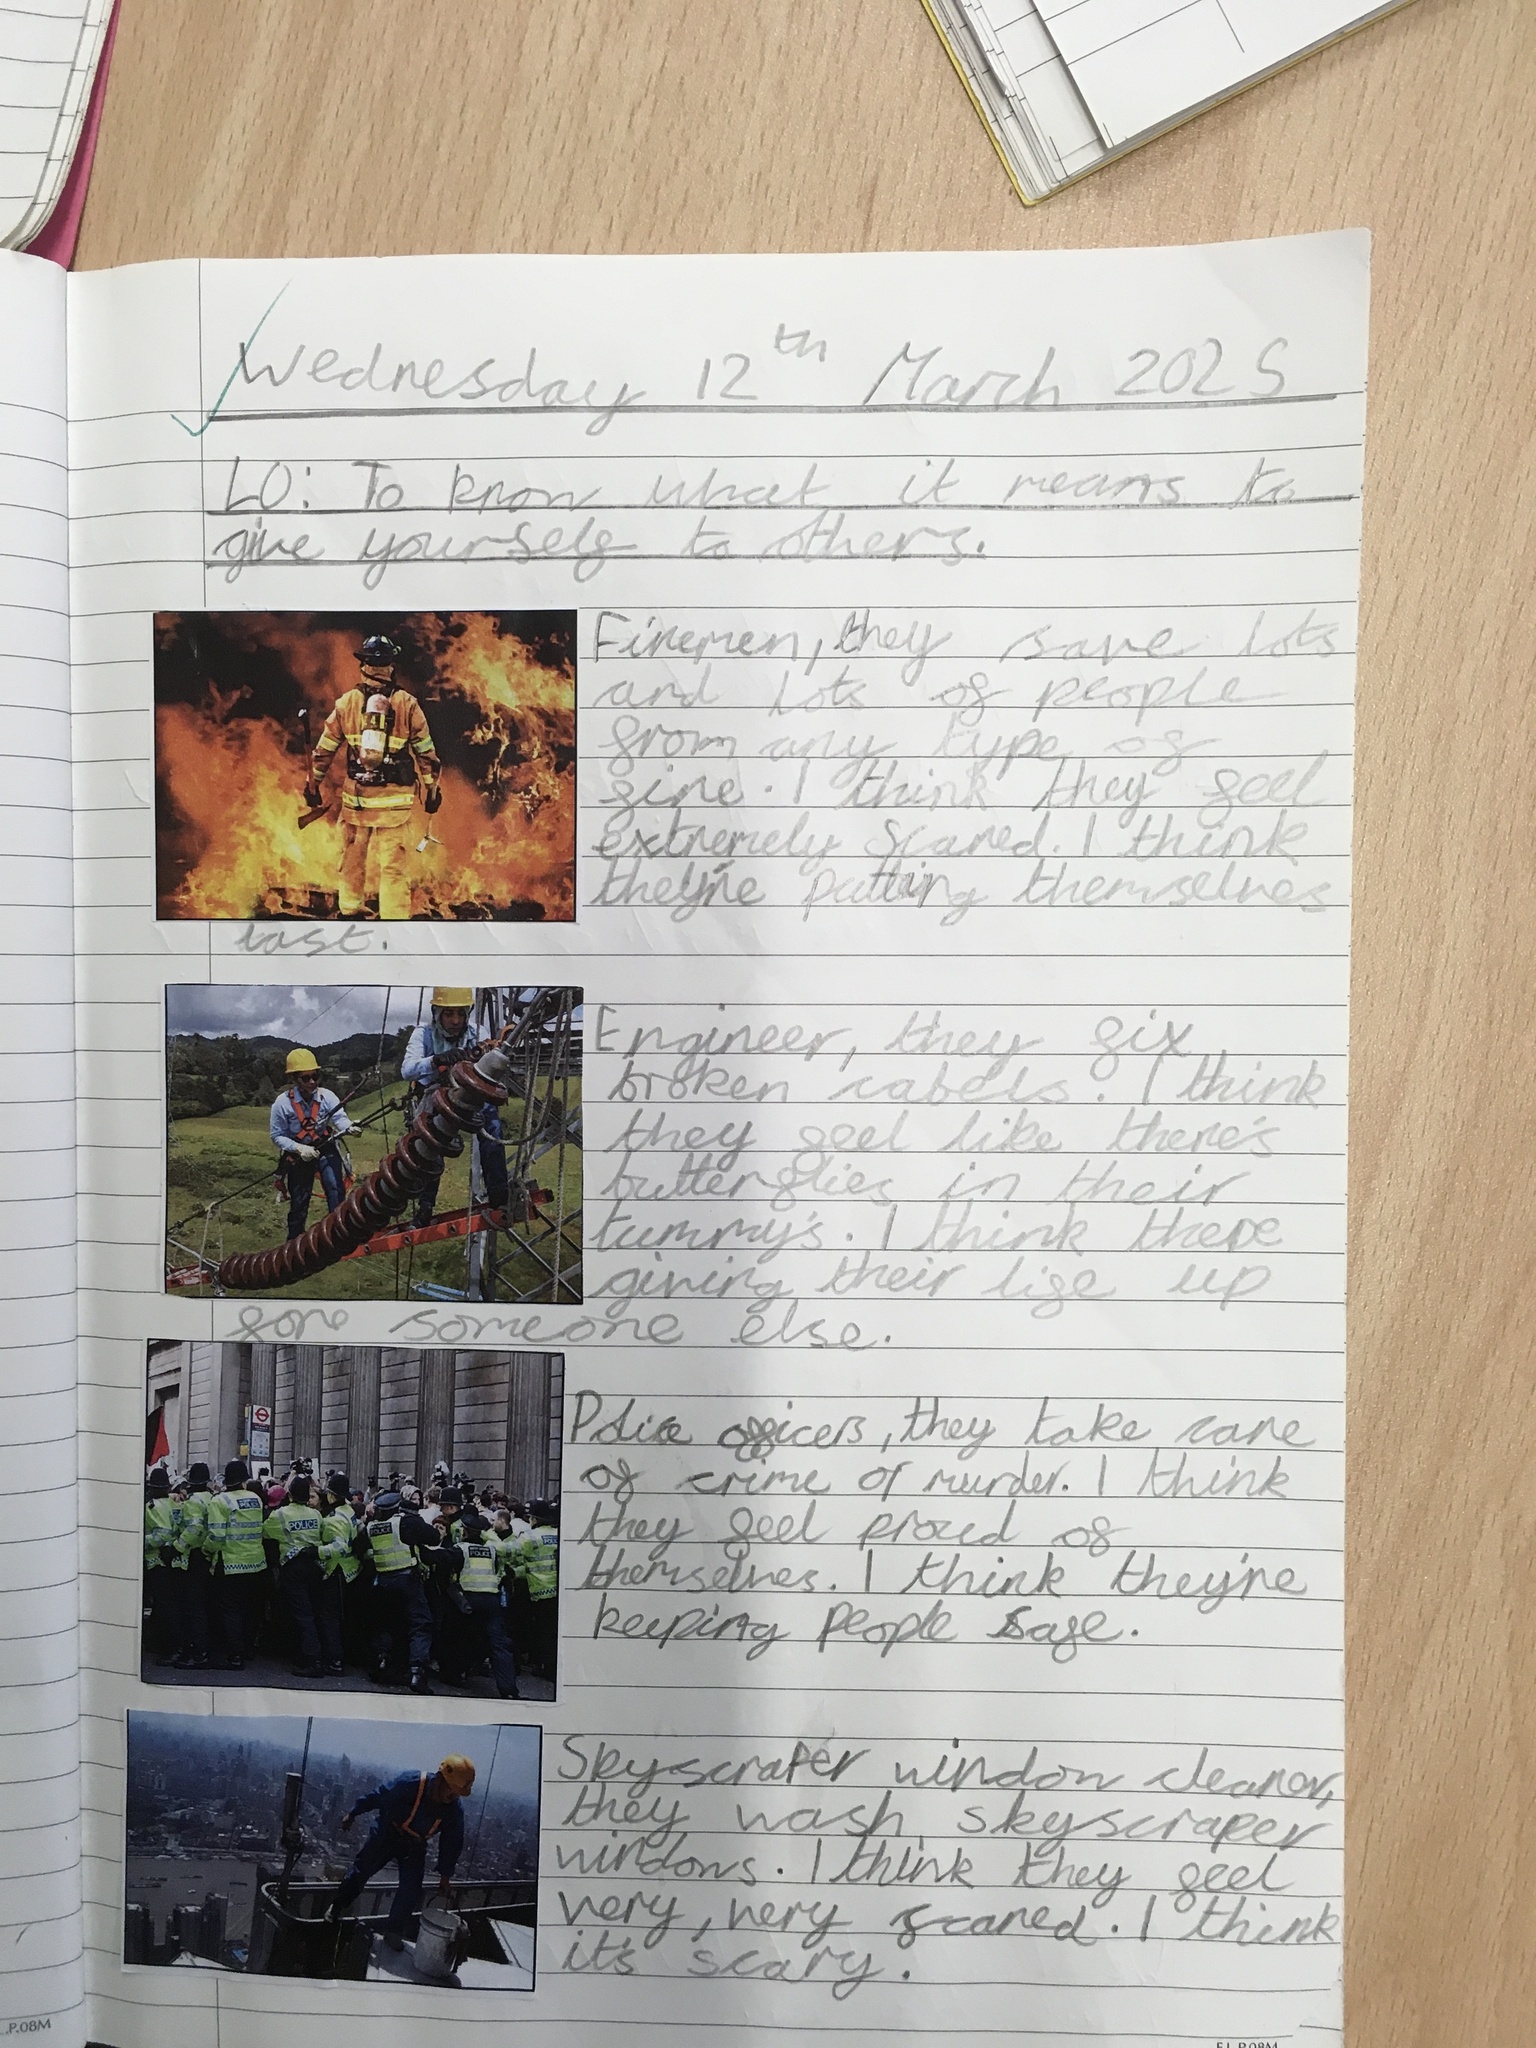 Wednesday 12th March 2025
LO: To know what it means to
give yourself to others.
Firemen, they save lots
and lots of people
from any type of
fire. I think they feel
extremely scared. I think
they're putting themselves
last.
Engineer, they fix
broken cabels. I think
they feel like there's
butterflies in their
tummy's. I think there
giving their life up
fore someone else.
Police officers, they take care
of crime or murder. I think
they feel proud of
themselves. I think they're
keeping people safe.
POLICE
Skyscraper window cleaner,
they wash skyscraper
windows. I think they feel
very, very scared. I think
it's scary.
.P.08M
F.L.P.08M